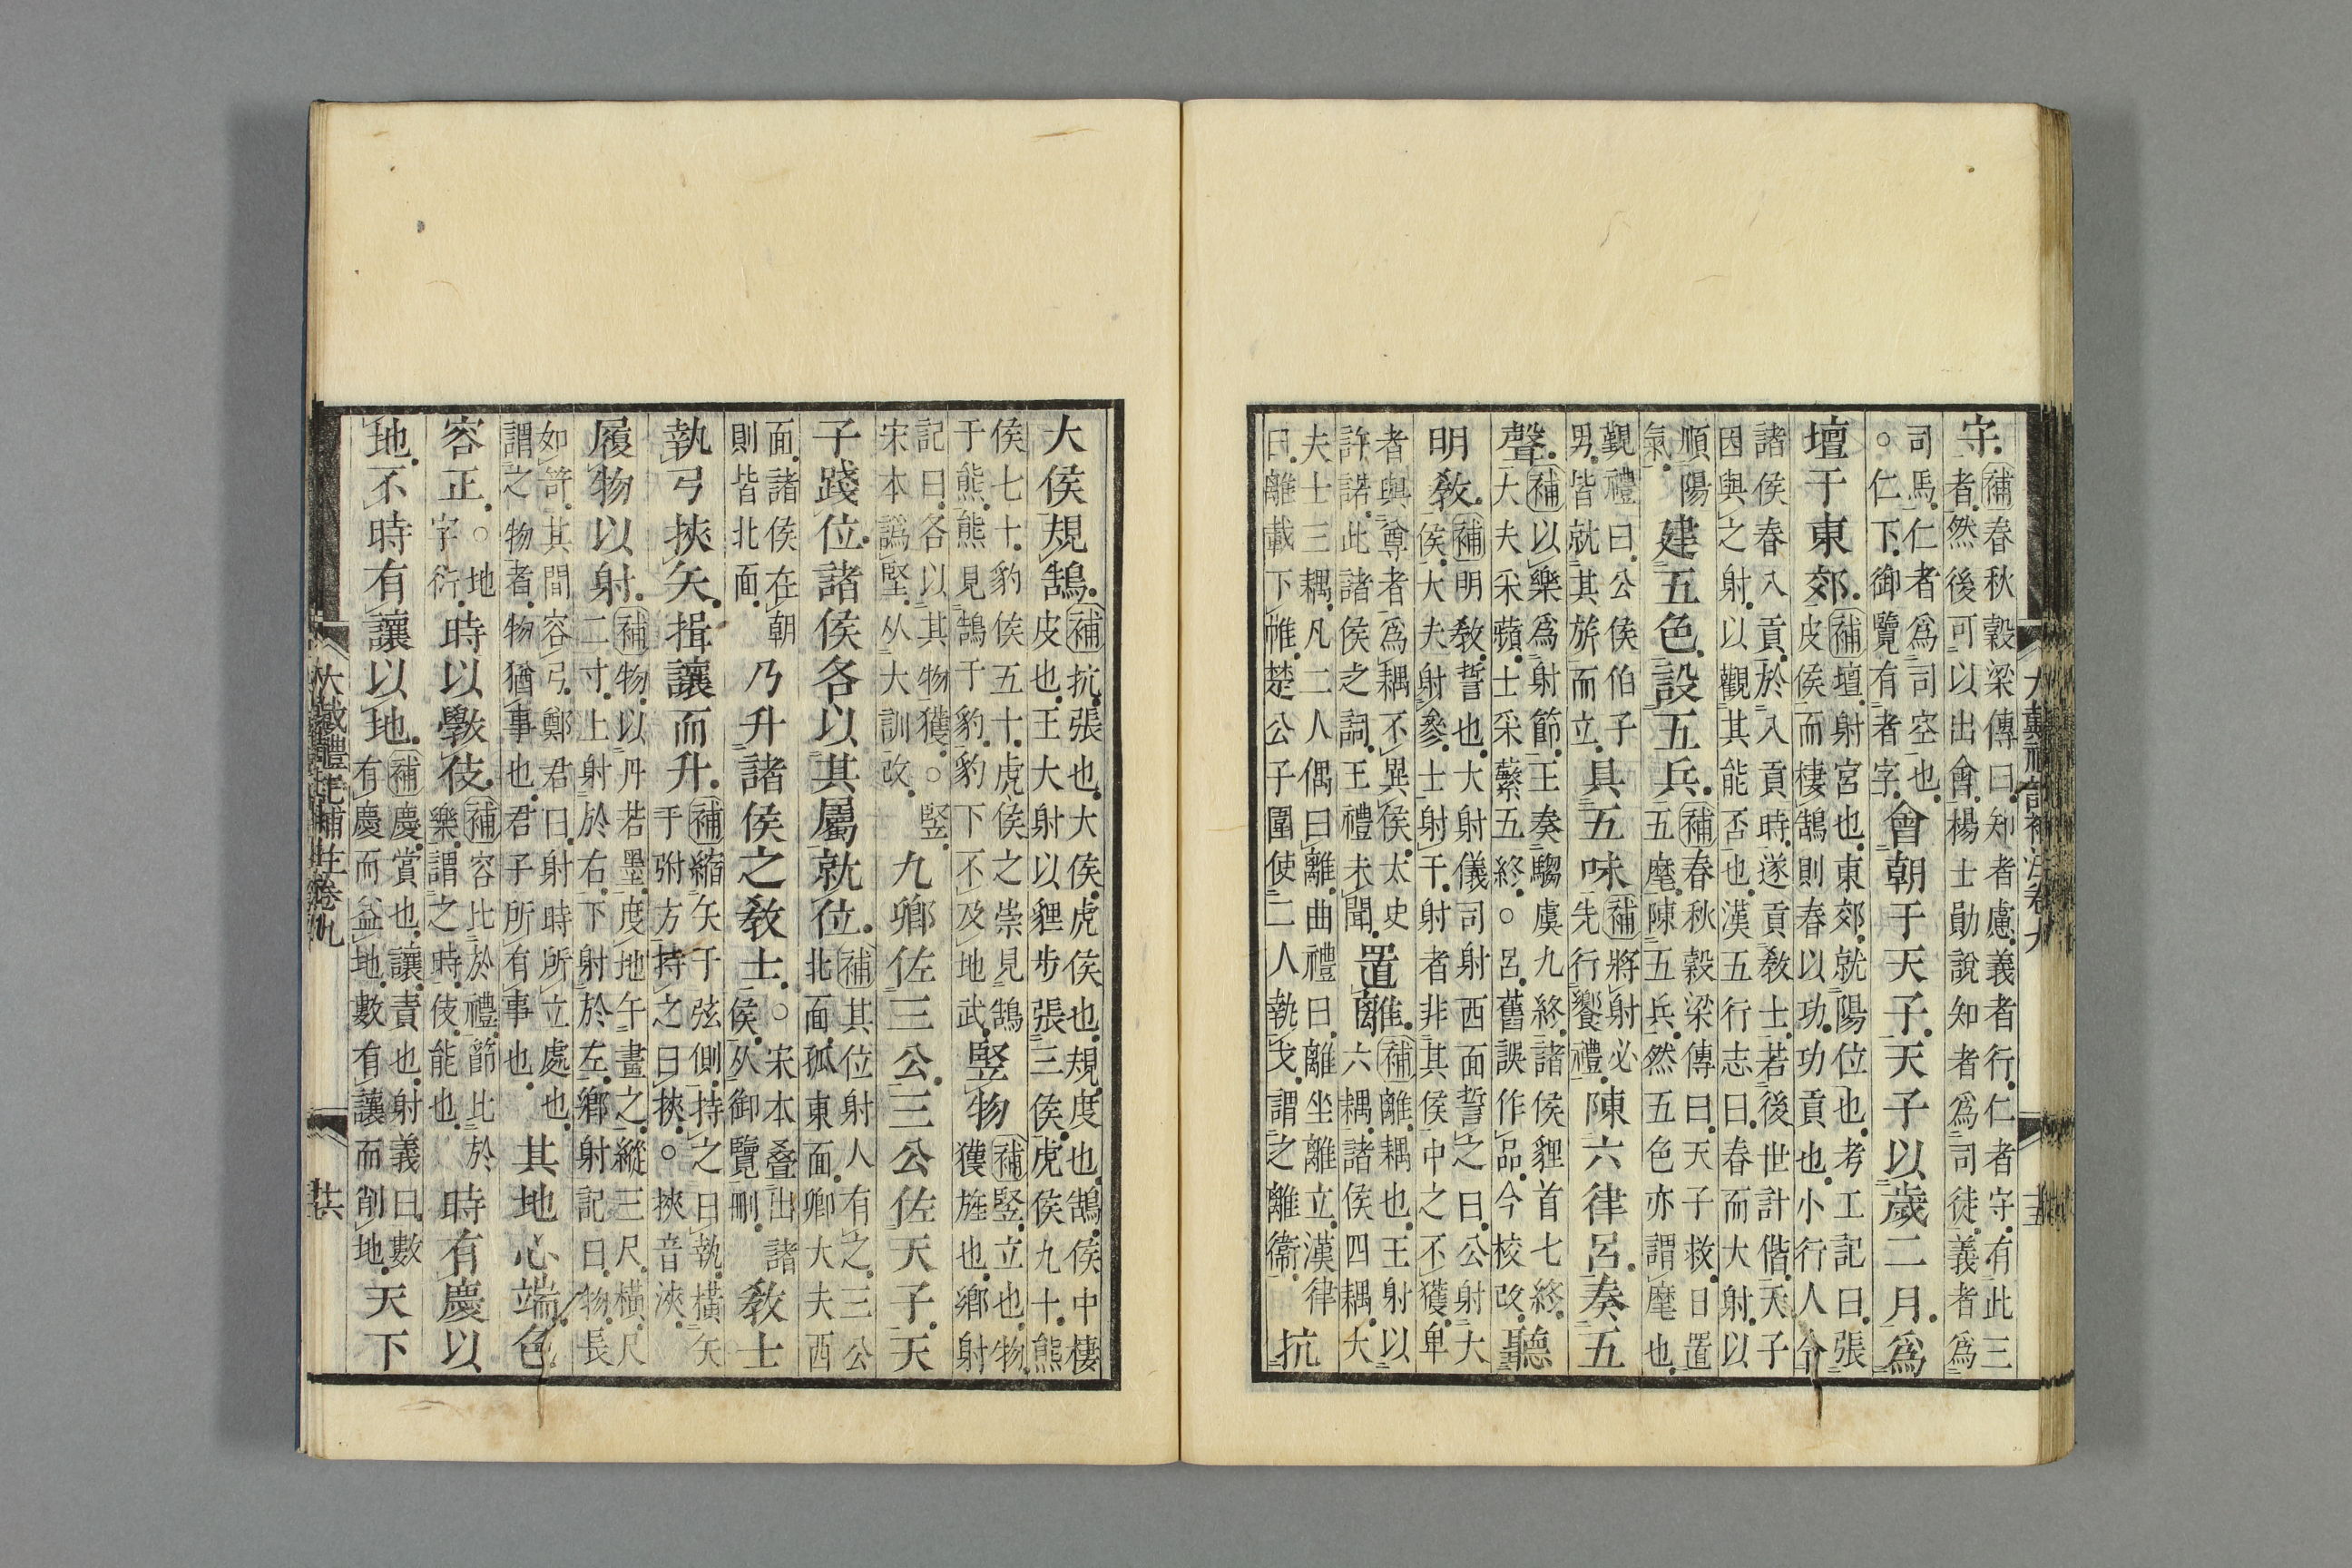 大戴禮記補注卷九　十五
守。補春秋穀梁傳曰、知者慮、義者行、仁者守、有此三
者、然後可以出會、楊士勛說知者爲司徒、義者爲
司馬、仁者爲司空也、
○仁下、御覽有者字。會朝于天子、天子以歲二月、爲
壇于東郊。補壇、射宮也、東郊、就陽位也、考工記曰、張
皮侯而棲鵠、則春以功、功貢也、小行人、令
諸侯春入貢、於入貢時、遂貢敎士、若後世計偕、天子
因與之射、以觀其能否也、漢五行志曰、春而大射、以
順陽
氣。建五色。設五兵。補春秋穀梁傳曰、天子救日、置
五麾、陳五兵、然五色亦謂麾也、
覲禮曰、公侯伯子
男、皆就其旂而立。具五味、補將射必
先行饗禮。陳六律呂。奏五
聲。補以樂爲射節、王奏騶虞九終、諸侯貍首七終、
大夫采蘋、士采蘩五終。○呂、舊誤作品、今校改。聽
明敎。補明敎、誓也、大射儀、司射西面誓之曰、公射大
侯、大夫射參、士射干、射者非其侯中之不獲、卑
者與尊者爲耦不異侯、太史
許諾、此諸侯之詞、王禮未聞。置離。補離、耦也、王射以
六耦、諸侯四耦、大
夫士三耦、凡二人偶曰離、曲禮曰、離坐離立、漢律
曰、離載下帷、楚公子圍使二人執戈、謂之離衞。抗
大侯規鵠。補抗、張也、大侯、虎侯也、規、度也、鵠、侯中棲
皮也、王大射以貍步張三侯、虎侯九十、熊
侯七十、豹侯五十、虎侯之崇見鵠
于熊、熊見鵠于豹、豹下不及地武。竪物補竪、立也、物、
獲旌也、鄉射
記曰、各以其物獲。○竪、
宋本譌堅、从大訓改。九鄉佐三公、三公佐天子、天
子踐位、諸侯各以其屬就位。補其位射人有之、三公
北面、孤東面、卿大夫西
面、諸侯在朝
則皆北面。乃升諸侯之敎士。○宋本叠出諸
侯、从御覽刪。敎士
執弓挾矢、揖讓而升。補縮矢于弦側、持之曰執、橫矢
于弣方持之曰挾。○挾音浹。
履物以射。補物、以丹若墨、度地午畫之、縱三尺、橫尺
二寸、上射於右、下射於左、鄉射記曰、物長
如笴、其間容弓、鄭君曰、射時所立處也、
謂之物者、物猶事也、君子所有事也。其地心端、色
容正。○地
字衍。時以斅伎。補容比於禮、節比於
樂、謂之時、伎、能也。時有慶以
地。不時有讓以地。補慶、賞也、讓、責也、射義曰、數
有慶而益地、數有讓而削地。天下
大戴禮記補注卷九　十六